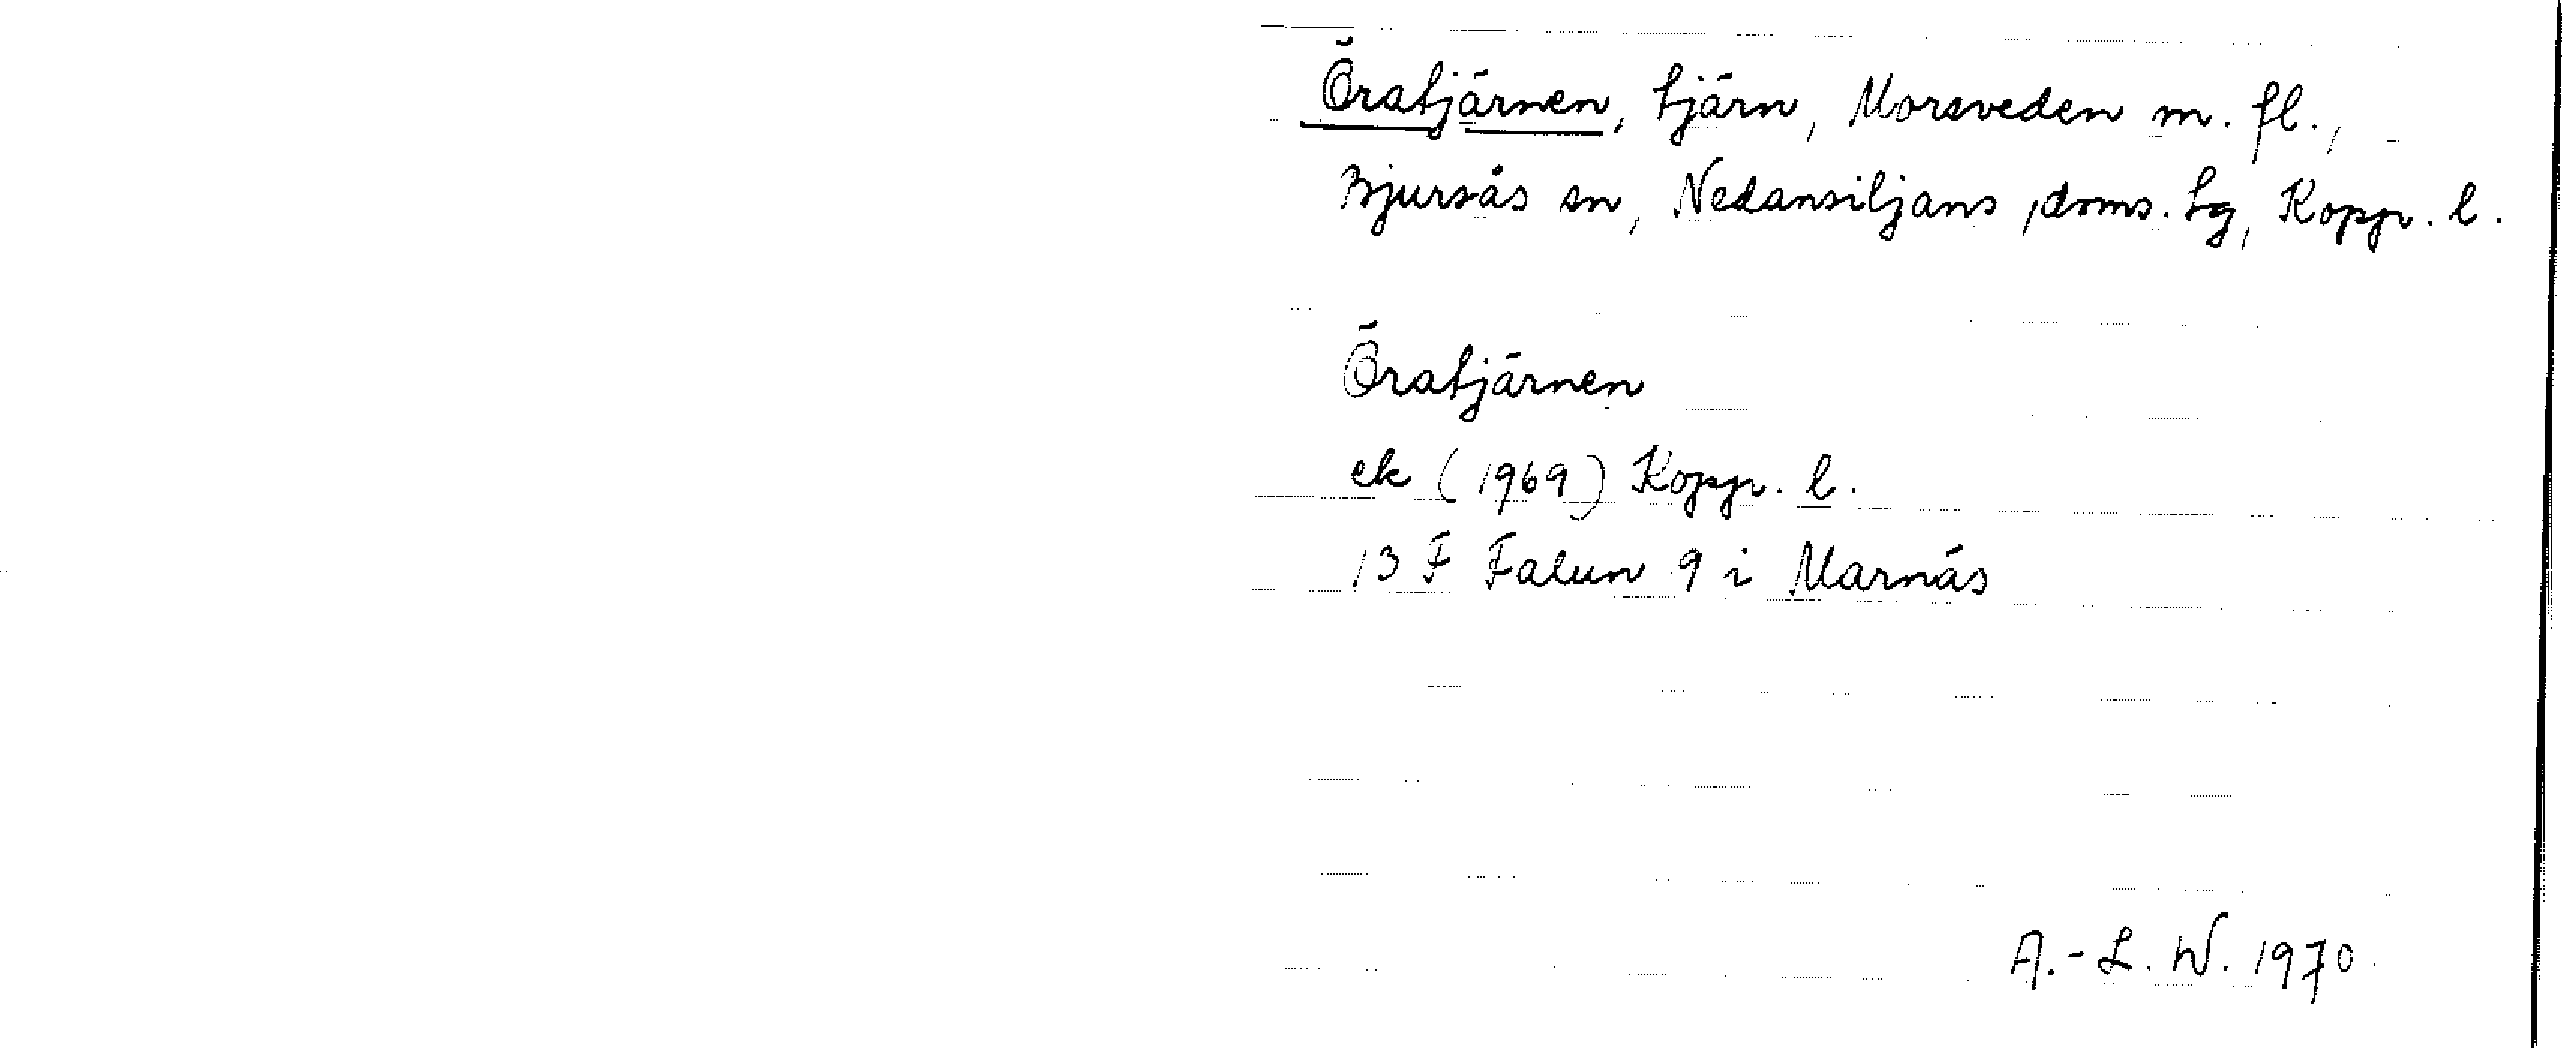 Öratjärnen, tjärn, Morsveden m. fl.,
Bjursås sn, Nedansiljans doms. tg, Kopp. l.
Öratjärnen
ek (1969) Kopp. l.
13 F Falun 9 i Marnäs
A.-L. W. 1970